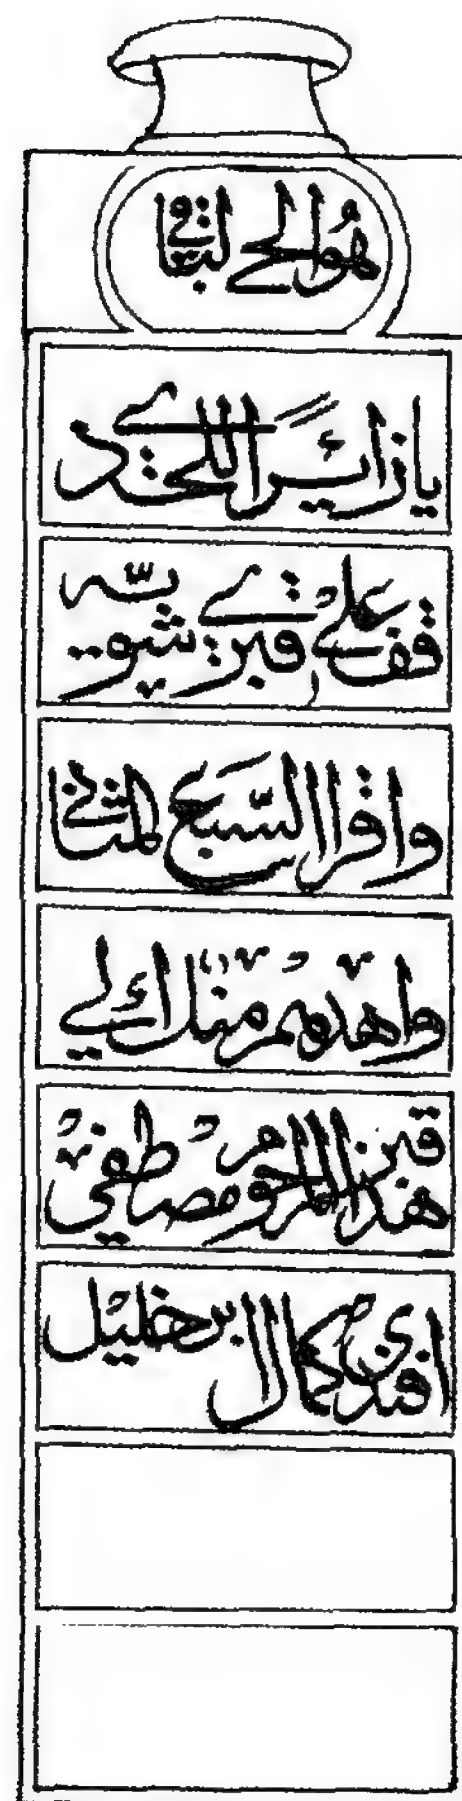 هو الحي الباقي
يا زائرا للحدي
قف علي قبري شويه
واقرا السبع المثاني
واهدهم منك الي
هذا قبر المرحوم مصطفي
افندي كمال ابن خليل